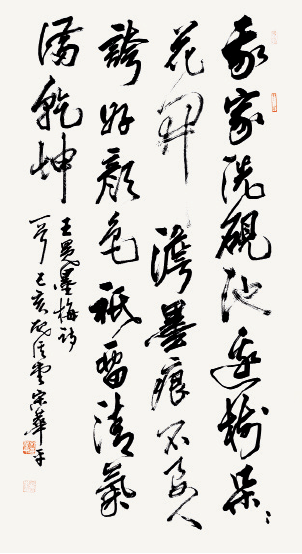 我家洗硯池邊樹朵〻
花開澹墨痕不要人
誇好顏色祇留清氣
滿乾坤
王冕墨梅詩
一首己亥宋華平